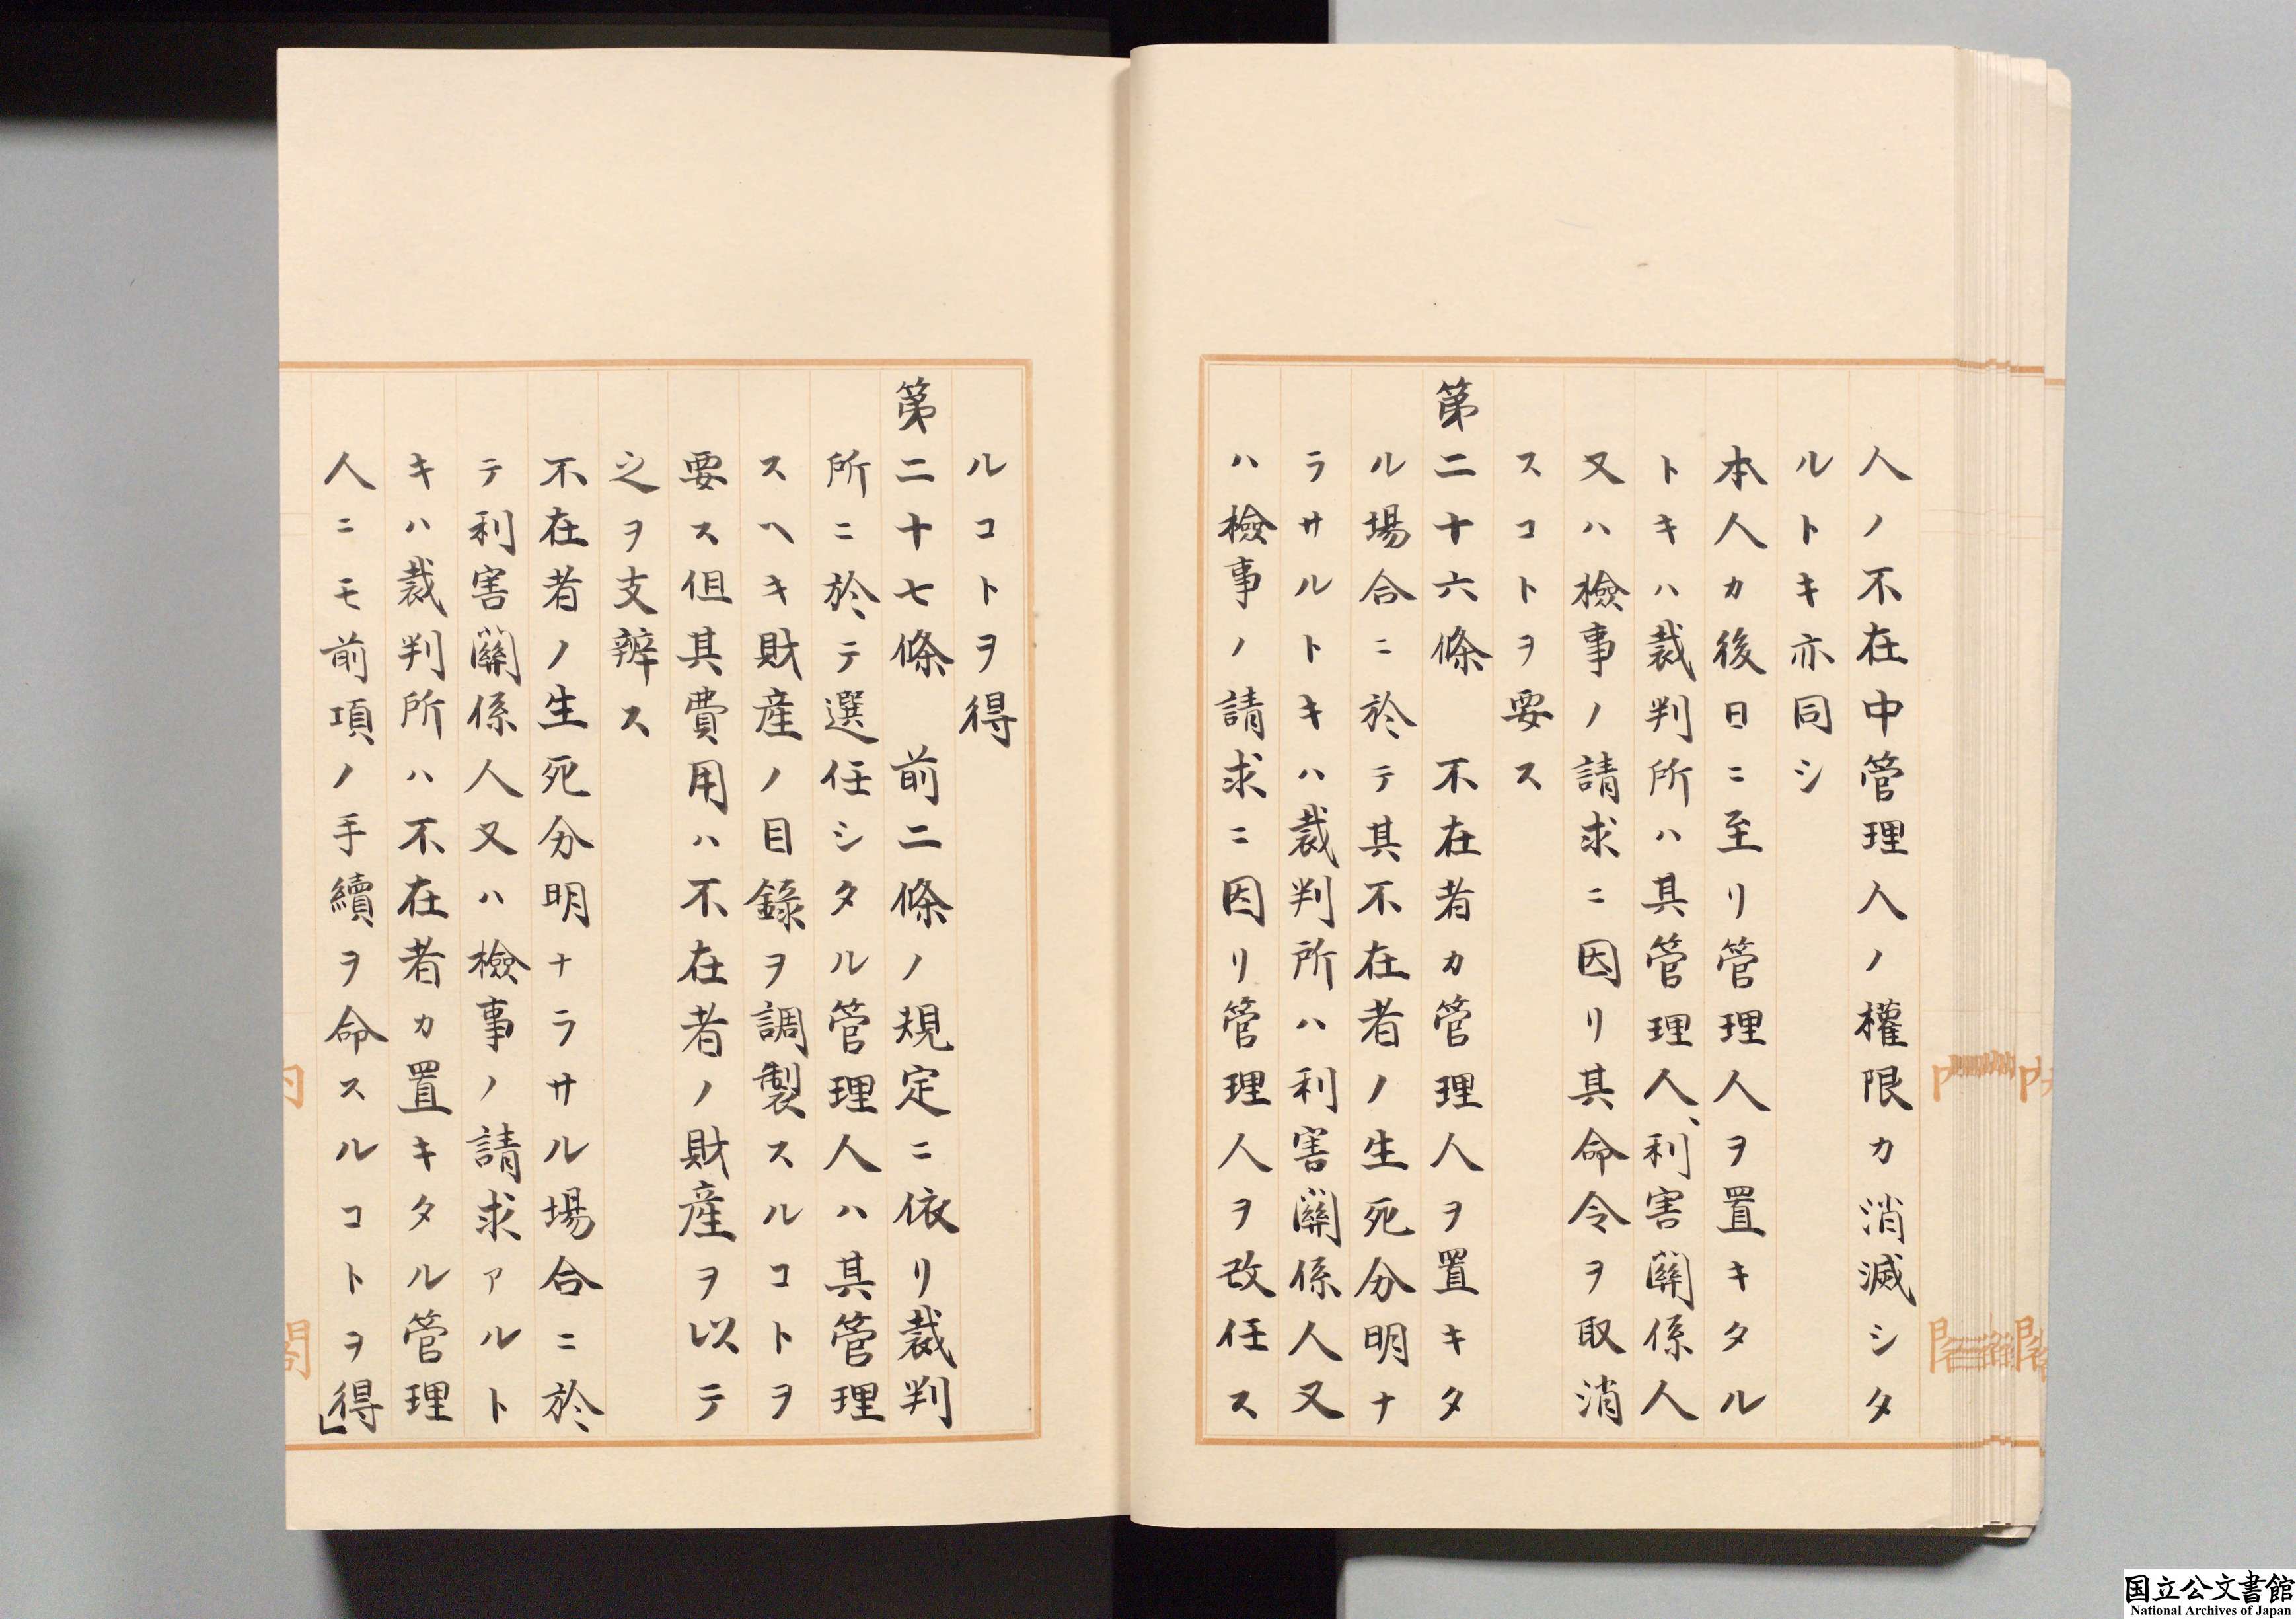 人ノ不在中管理人ノ權限カ消滅シタ
ルトキ亦同シ
本人カ後日ニ至リ管理人ヲ置キタル
トキハ裁判所ハ其管理人、利害關係人
又ハ檢事ノ請求ニ因リ其命令ヲ取消
スコトヲ要ス
第二十六條 不在者カ管理人ヲ置キタ
ル場合ニ於テ其不在者ノ生死分明ナ
ラサルトキハ裁判所ハ利害關係人又
ハ檢事ノ請求ニ因リ管理人ヲ改任ス
ルコトヲ得
第二十七條 前二條ノ規定ニ依リ裁判
所ニ於テ選任シタル管理人ハ其管理
スヘキ財産ノ目錄ヲ調製スルコトヲ
要ス但其費用ハ不在者ノ財産ヲ以テ
之ヲ支辨ス
不在者ノ生死分明ナラサル場合ニ於
テ利害關係人又ハ檢事ノ請求アルト
キハ裁判所ハ不在者カ置キタル管理
人ニモ前項ノ手續ヲ命スルコトヲ得」
内閣
国立公文書館
National Archives of Japan